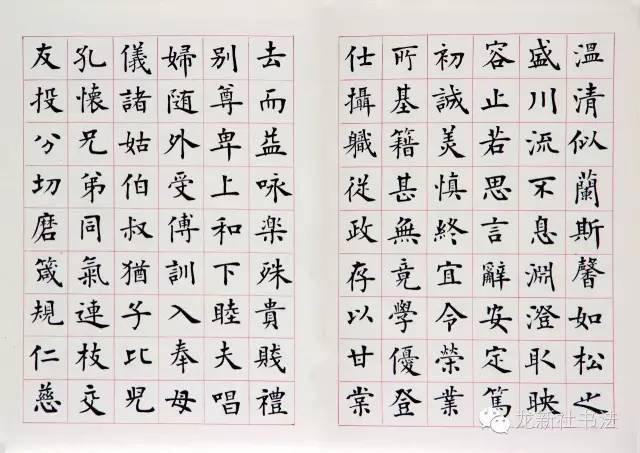 溫清似蘭斯馨如松之
盛川流不息淵澄取映
容止若思言辭安定篤
初誠美慎終宜令榮業
所基籍甚無竟學優登
仕攝軄從政存以甘棠
去而益咏楽殊貴賤禮
别尊卑上和下睦夫唱
婦随外受傅訓入奉母
儀諸姑伯叔猶子比児
孔懷兄弟同氣連枝交
友投分切磨箴規仁慈
龙新社书法